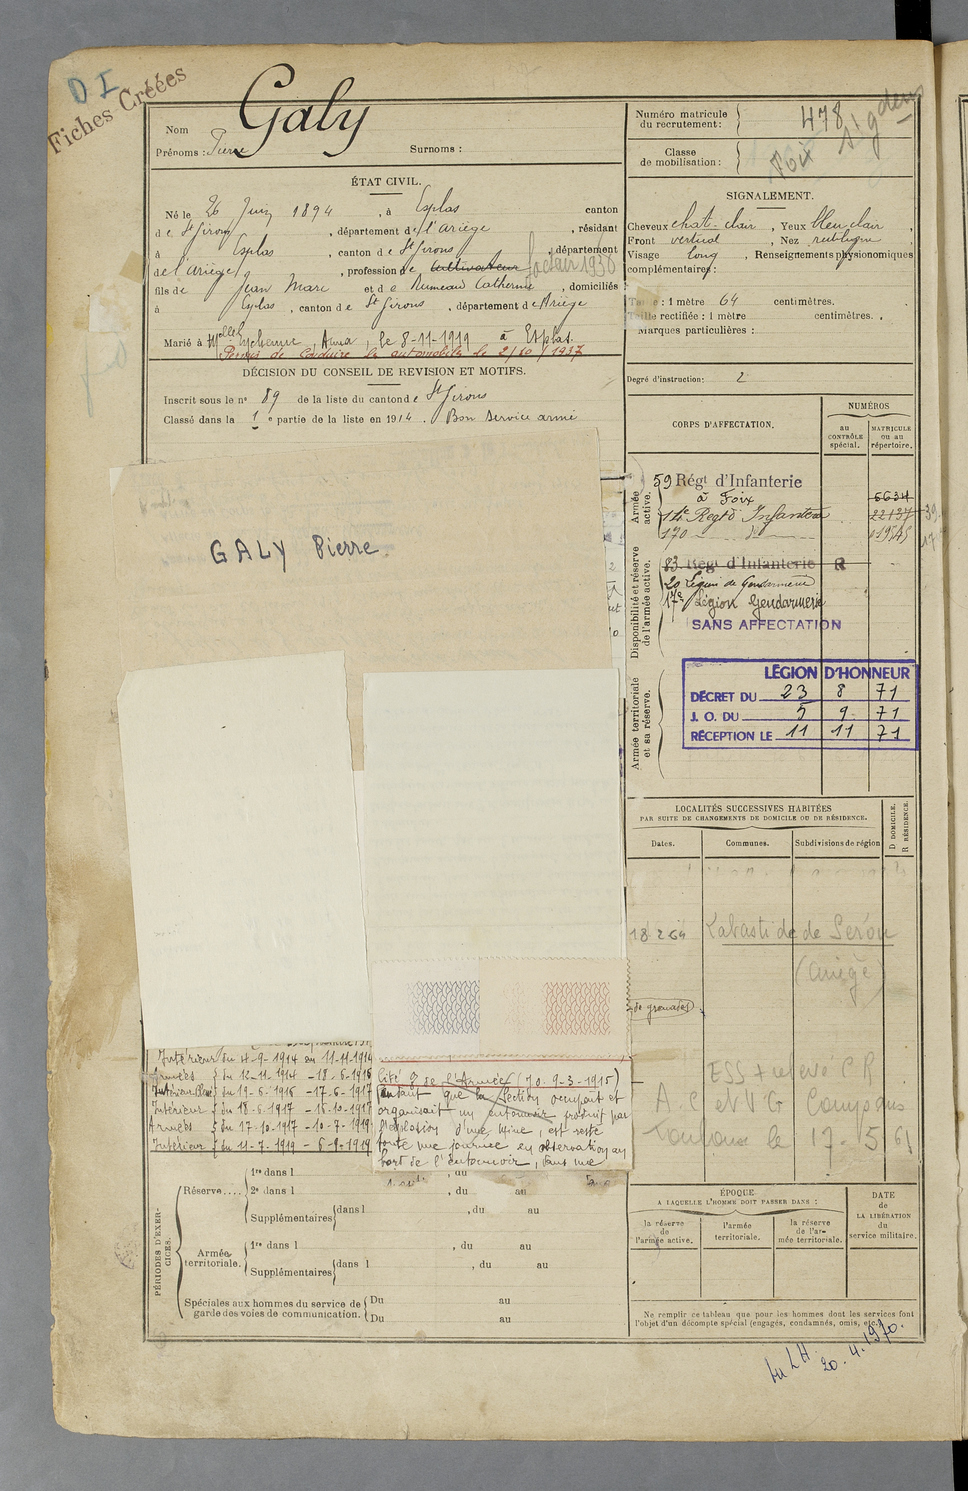 D I
Fiches Créées
Nom Galy
Prénoms : Pierre Surnoms :
ÉTAT CIVIL.
Né le 26 Juin 1894, à Esplas canton
de St Girons, département de l'Ariège, résidant
à Esplas, canton de St Girons, département
de l'Ariège, profession de cultivateur facteur 1936
fils de Jean Marc et de Rumeau Catherine, domiciliés
à Esplas, canton de St Girons, département de Ariège
Marié à Melle Eychenne, Anna, le 8-11-1919 à Esplas.
Permis de conduire les automobiles le 2/10/1937
DÉCISION DU CONSEIL DE REVISION ET MOTIFS.
Inscrit sous le n° 89 de la liste du canton de St Girons
Classé dans la 1e partie de la liste en 1914. Bon service armé
GALY Pierre.
Intérieur du 4-9-1914 au 11-11-1914
Armées du 12-11-1914 - 18-6-1916
Intérieur du 19-6-1916 - 17-6-1917
Intérieur du 18-6-1917 - 16-10-1917
Armées du 17-10-1917 - 10-7-1919
Intérieur du 11-7-1919 - 6-9-1919
de grenades
lité 8 de l'Armée (J.O. 9-3-1915)
que la section occupant et
organisait un entonnoir produit par
l'explosion d'une mine, est resté
toute une journée en observation au
bord de l'entonnoir, dans une
PÉRIODES D'EXERCICES.
Réserve.... 1re dans l , du au
2e dans l , du au
Supplémentaires dans l , du au
Armée territoriale. 1re dans l , du au
Supplémentaires dans l , du au
Spéciales aux hommes du service de garde des voies de communication. Du au
Du au
Numéro matricule du recrutement : 478
Foix
Classe de mobilisation :
SIGNALEMENT.
Cheveux chat-clair, Yeux bleu clair,
Front vertical, Nez rectiligne
Visage long, Renseignements physionomiques
complémentaires :
Taille : 1 mètre 64 centimètres.
Taille rectifiée : 1 mètre centimètres.
Marques particulières :
Degré d'instruction : 2
CORPS D'AFFECTATION.
NUMÉROS
au CONTRÔLE spécial.
MATRICULE ou au répertoire.
Armée active.
59 Régt d'Infanterie
à Foix 6634
14e Regt d'Infanterie 22137
170 - do -
Disponibilité et réserve de l'armée active.
83 Régt d'Infanterie R
20 Légion de Gendarmerie
17e Légion Gendarmerie
SANS AFFECTATION
Armée territoriale et sa réserve.
LÉGION D'HONNEUR
DÉCRET DU 23 8 71
J. O. DU 5 9 71
RÉCEPTION LE 11 11 71
LOCALITÉS SUCCESSIVES HABITÉES
PAR SUITE DE CHANGEMENTS DE DOMICILE OU DE RÉSIDENCE.
Dates. Communes. Subdivisions de région
D DOMICILE.
R RÉSIDENCE.
18 2 64 Labastide de Sérou
(Ariège)
ESS + relevé C R
Toulouse le 17-5 61
ÉPOQUE
A LAQUELLE L'HOMME DOIT PASSER DANS :
la réserve de l'armée active.
l'armée territoriale.
la réserve de l'armée territoriale.
DATE de LA LIBÉRATION du service militaire.
Ne remplir ce tableau que pour les hommes dont les services font
l'objet d'un décompte spécial (engagés, condamnés, omis, etc.)
Au LH
20.4.1970.